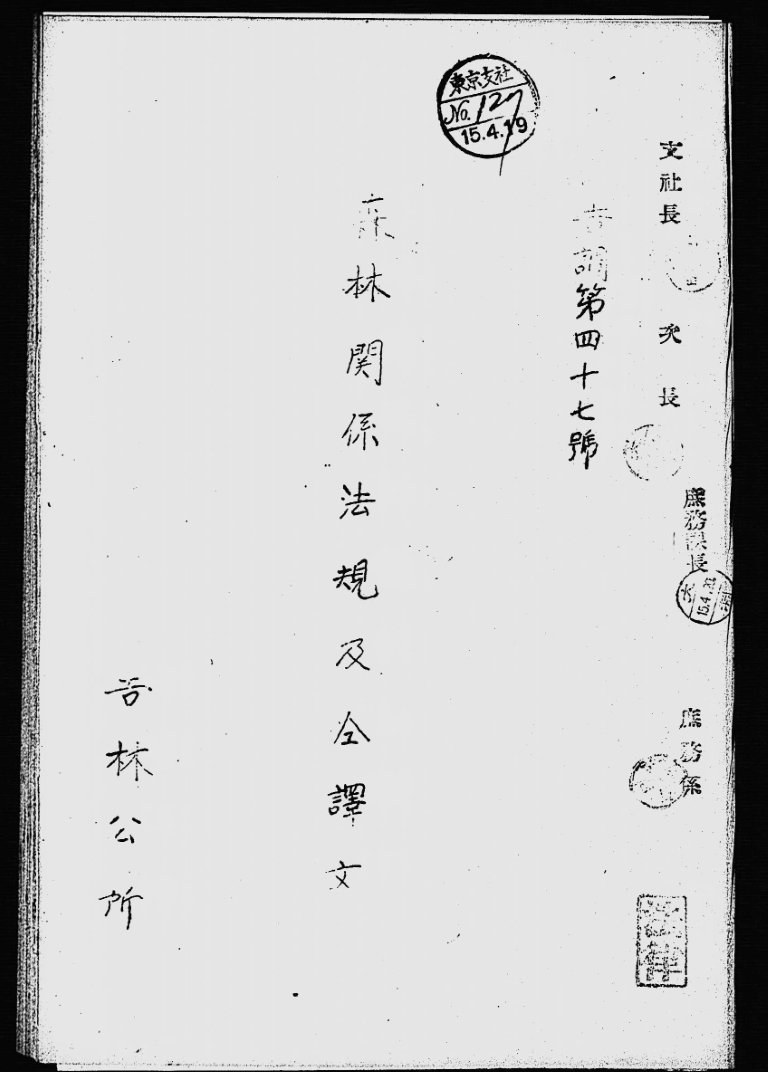 東京支社
No.127
15.4.19
支社長
次長
庶務課長
15.4.
庶務係
吉調第四十七號
森林関係法規及仝譯文
吉林公所
法律